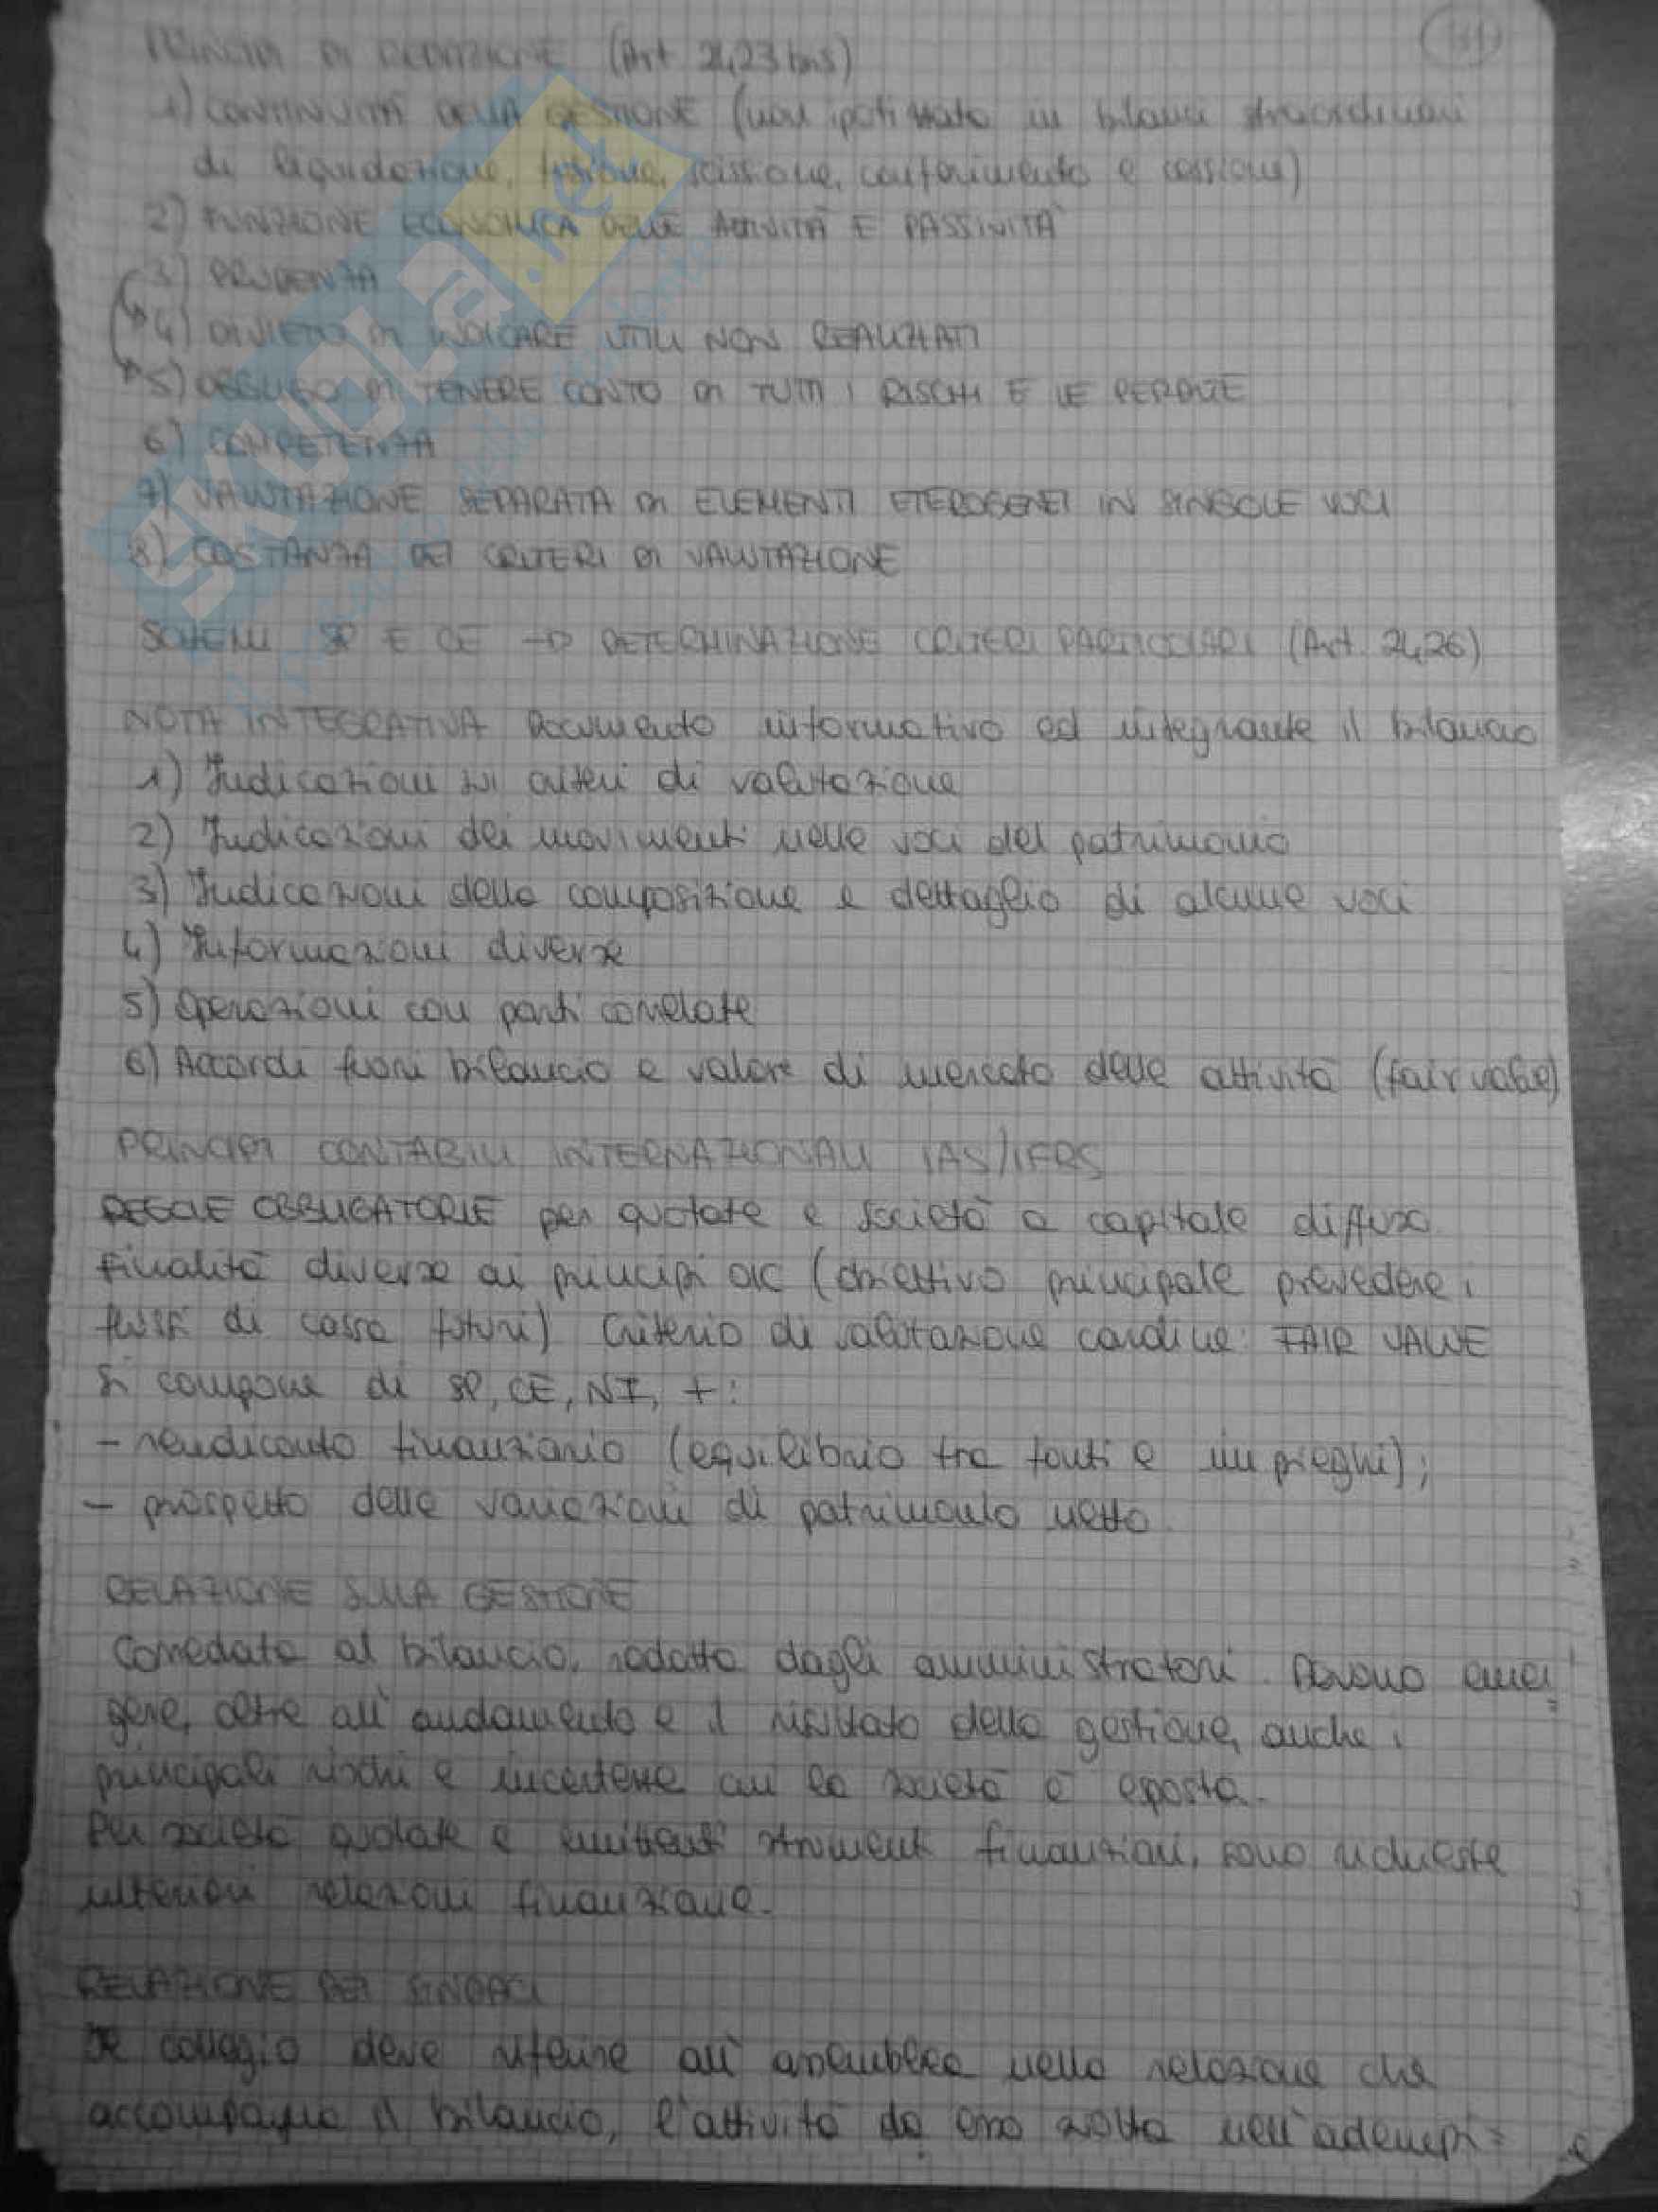 PRINCIPI DI REDAZIONE (Art 2423 bis)
1) CONTINUITÀ DELLA GESTIONE (non ipotizzata in bilanci straordinari
di liquidazione, fusione, scissione, conferimento e cessione)
2) FUNZIONE ECONOMICA DELLE ATTIVITÀ E PASSIVITÀ
3) PRUDENZA
4) DIVIETO DI INDICARE UTILI NON REALIZZATI
5) OBBLIGO DI TENERE CONTO DI TUTTI I RISCHI E LE PERDITE
6) COMPETENZA
7) VALUTAZIONE SEPARATA DI ELEMENTI ETEROGENEI IN SINGOLE VOCI
8) COSTANZA DEI CRITERI DI VALUTAZIONE
SCHEMI SP E CE → DETERMINAZIONE CRITERI PARTICOLARI (Art. 2426)
NOTA INTEGRATIVA Documento informativo ed integrante il bilancio
1) Indicazioni sui criteri di valutazione
2) Indicazioni dei movimenti nelle voci del patrimonio
3) Indicazioni della composizione e dettaglio di alcune voci
4) Informazioni diverse
5) Operazioni con parti correlate
6) Accordi fuori bilancio e valore di mercato delle attività (fair value)
PRINCIPI CONTABILI INTERNAZIONALI IAS/IFRS
REGOLE OBBLIGATORIE per quotate e società a capitale diffuso.
Finalità diverse ai principi OIC (obiettivo principale prevedere i
flussi di cassa futuri) Criterio di valutazione cardine: FAIR VALUE
Si compone di SP, CE, NI, + :
- rendiconto finanziario (equilibrio tra fonti e impieghi);
- prospetto delle variazioni di patrimonio netto.
RELAZIONE SULLA GESTIONE
Corredata al bilancio, redatta dagli amministratori. Devono emer
gere, oltre all'andamento e il risultato della gestione, anche i
principali rischi e incertezze cui la società è esposta.
Per società quotate e emittenti strumenti finanziari, sono richieste
ulteriori relazioni finanziarie.
RELAZIONE DEI SINDACI
Il collegio deve riferire all'assemblea nella relazione che
accompagna il bilancio, l'attività da esso svolta nell'adempi=
SKUOLA.net